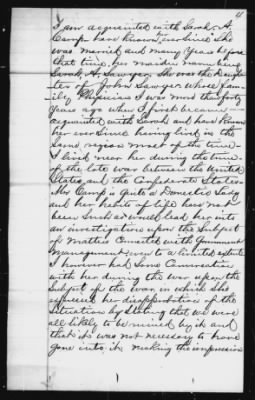 11
I am acquainted with Sarah A.
Camp have known her ever since she
was married and many years before
that time, her maiden name being
Sarah A. Sawyer. She was the Daugh-
ter of John Sawyer whose Fam-
ily Physician I was most thirty
years ago when I first became
acquainted with Sarah and have known
her ever since having lived in the
same region most of the time
I lived near her during the time
of the late war between the United
States and the Confederate States.
Mrs Camp is quite a Domestic Lady
and her habits of life has not
been such as would lead her into
an investigation upon the Subject
of Matters Connected with Government
Management even to a limited extent
I however had Some Conversation
with her during the war upon the
Subject of the war, in which She
expressed her disapprobation of the
Situation by Stating that we were
all likely to be ruined by it and
that it was not necessary to have
gone into it making the impression